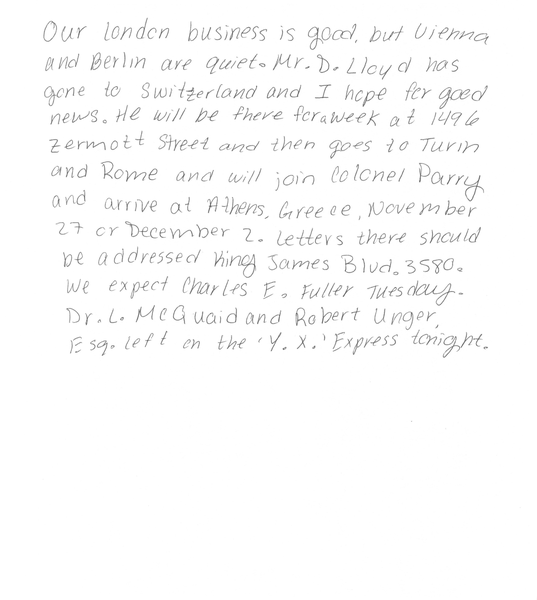 Our london business is good, but Vienna
and Berlin are quiet. Mr. D. Lloyd has
gone to Switzerland and I hope for good
news. He will be there for a week at 1496
Zermott Street and then goes to Turin
and Rome and will join Colonel Parry
and arrive at Athens, Greece, November
27 or December 2. Letters there should
be addressed King James Blvd. 3580.
We expect Charles E. Fuller Tuesday.
Dr. L. McQuaid and Robert Unger,
Esq. left on the 'Y. X.' Express tonight.